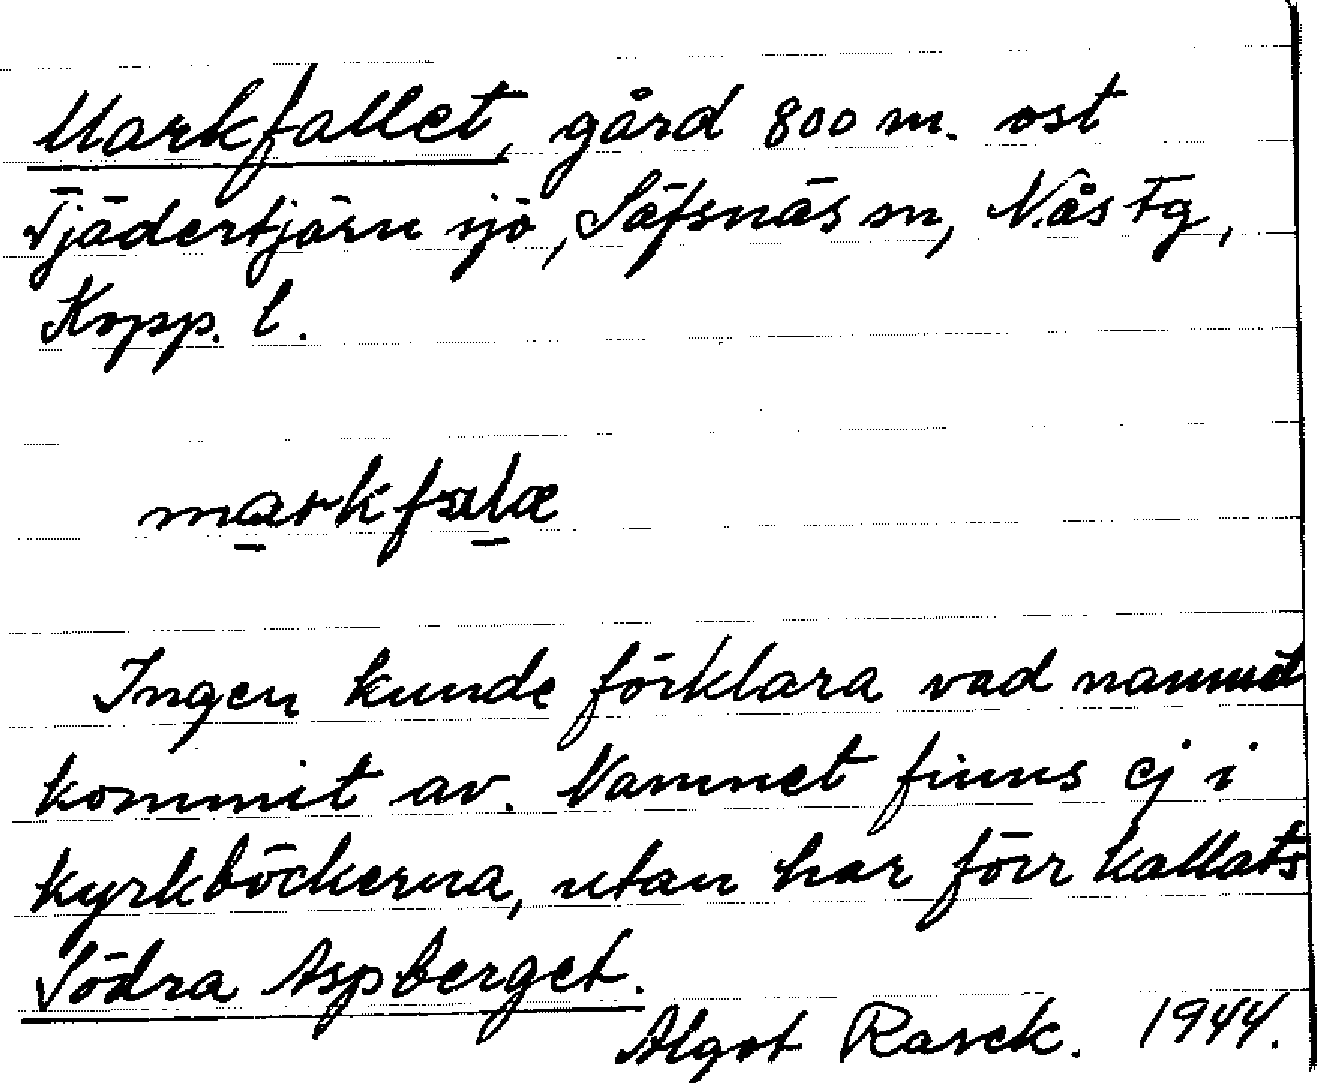 Markfallet, gård 800 m. ost
Tjädertjärn sjö, Säfsnäs sn, Nås tg,
Kopp. l.
markfalæ
Ingen kunde förklara vad namnet
kommit av. Namnet finns ej i
kyrkböckerna, utan har förr kallats
Södra Aspberget.
Algot Rasck. 1944.